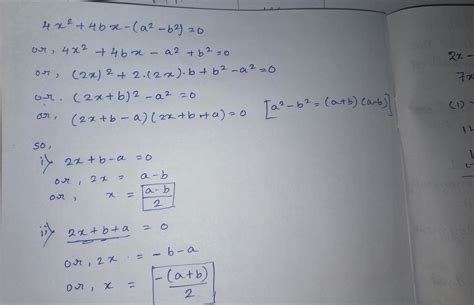 4x² + 4bx - (a² - b²) = 0
or, 4x² + 4bx - a² + b² = 0
or, (2x)² + 2.(2x).b + b² - a² = 0
or. (2x+b)² - a² = 0
or, (2x+b-a)(2x+b+a) = 0 [a² - b² = (a+b)(a-b)]
so,
i) 2x+b-a = 0
or, 2x = a-b
or, x = (a-b)/2
ii) 2x+b+a = 0
or, 2x = -b-a
or, x = -(a+b)/2
2x -
7x